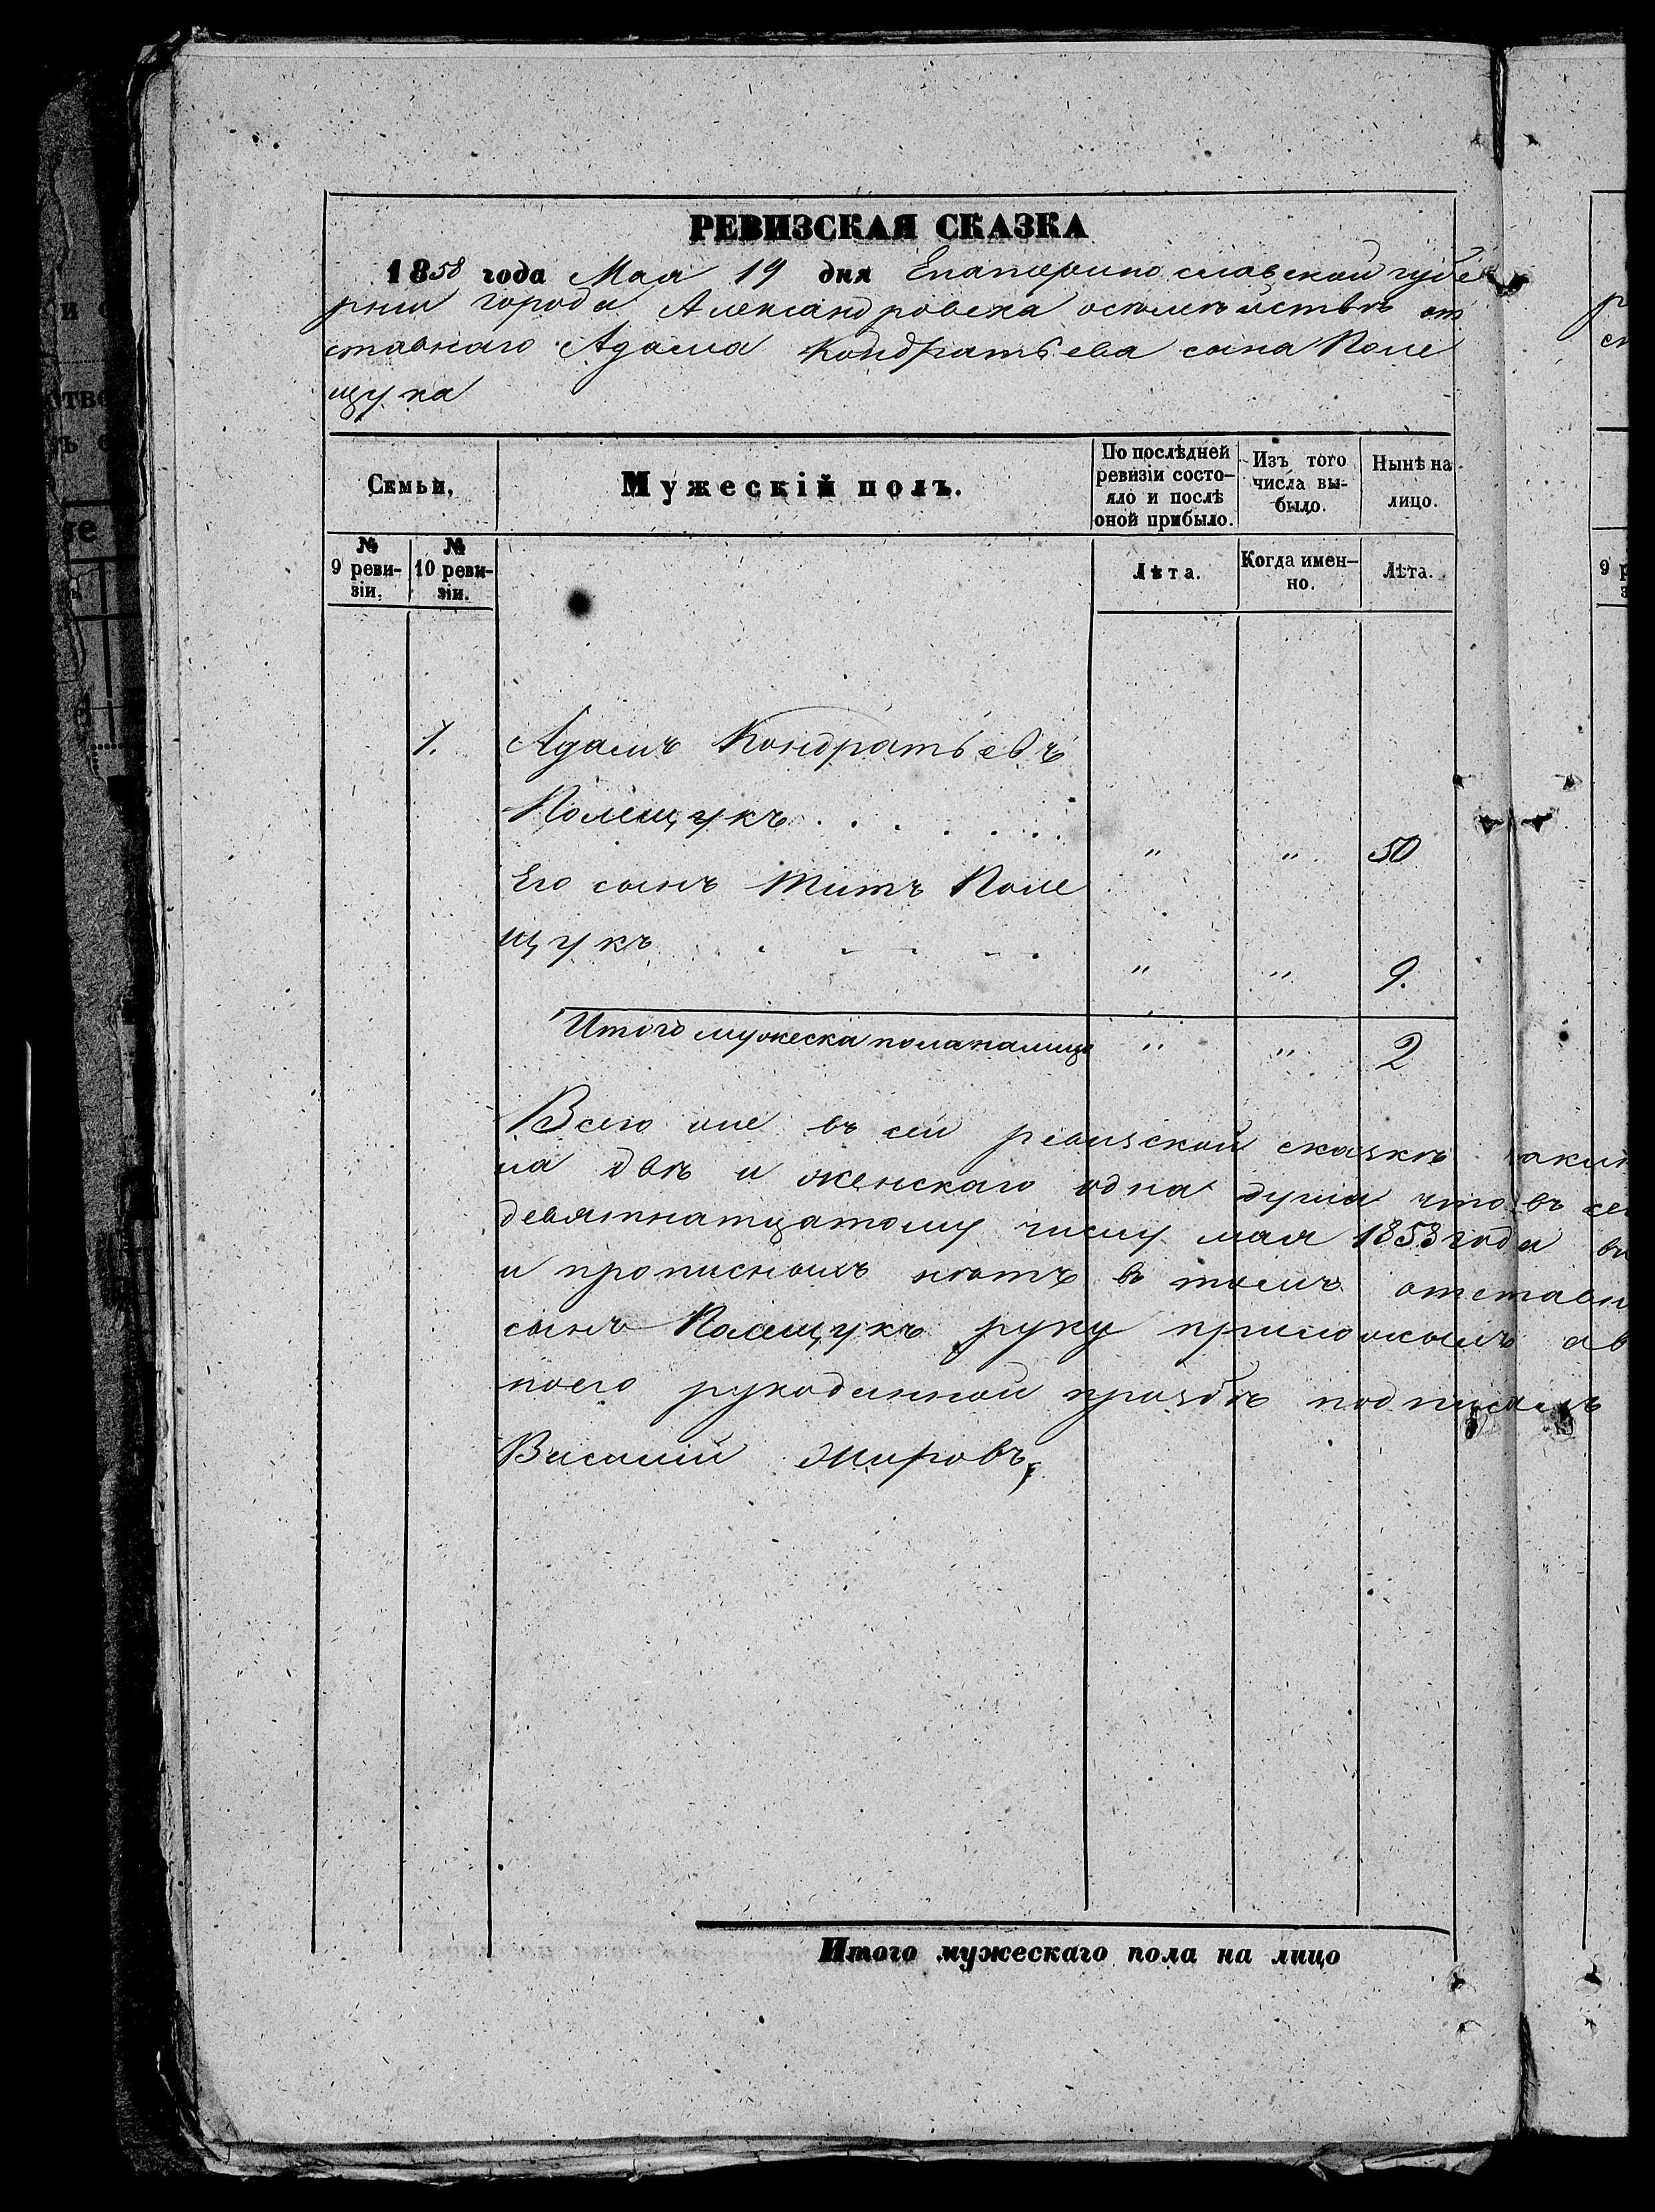 РЕВИЗСКАЯ СКАЗКА
1858 года Мая 19 дня Екатеринославской губе
рнии города Александровска осемействѣ от
ставнаго Адама Кондратьева сына Поле
щука
Семьи,
Мужескій полъ.
По послѣдней
ревизіи состо-
яло и послѣ
оной прибыло.
Изъ того
числа вы-
было.
Нынѣ на
лицо.
№
9 реви-
зіи.
№
10 реви-
зіи.
Лѣта.
Когда имен-
но.
Лѣта.
1.
Адамъ Кондратьевъ
Полещукъ . . . . . . . " " 50
Его сынъ Титъ Поле
щукъ . . . . . " " 9.
Итого мужеска пола налицо " " 2
Всего же въ сей ревизской сказкѣ
на двѣ и женскаго одна душа что въ
девятнатцатому числу мая 1858 года
и прописныхъ нѣтъ в томъ
сынъ Полещукъ руку приложилъ
ного рукоданной прозбѣ подписалъ
Василий Жировъ
Итого мужескаго пола на лицо
9